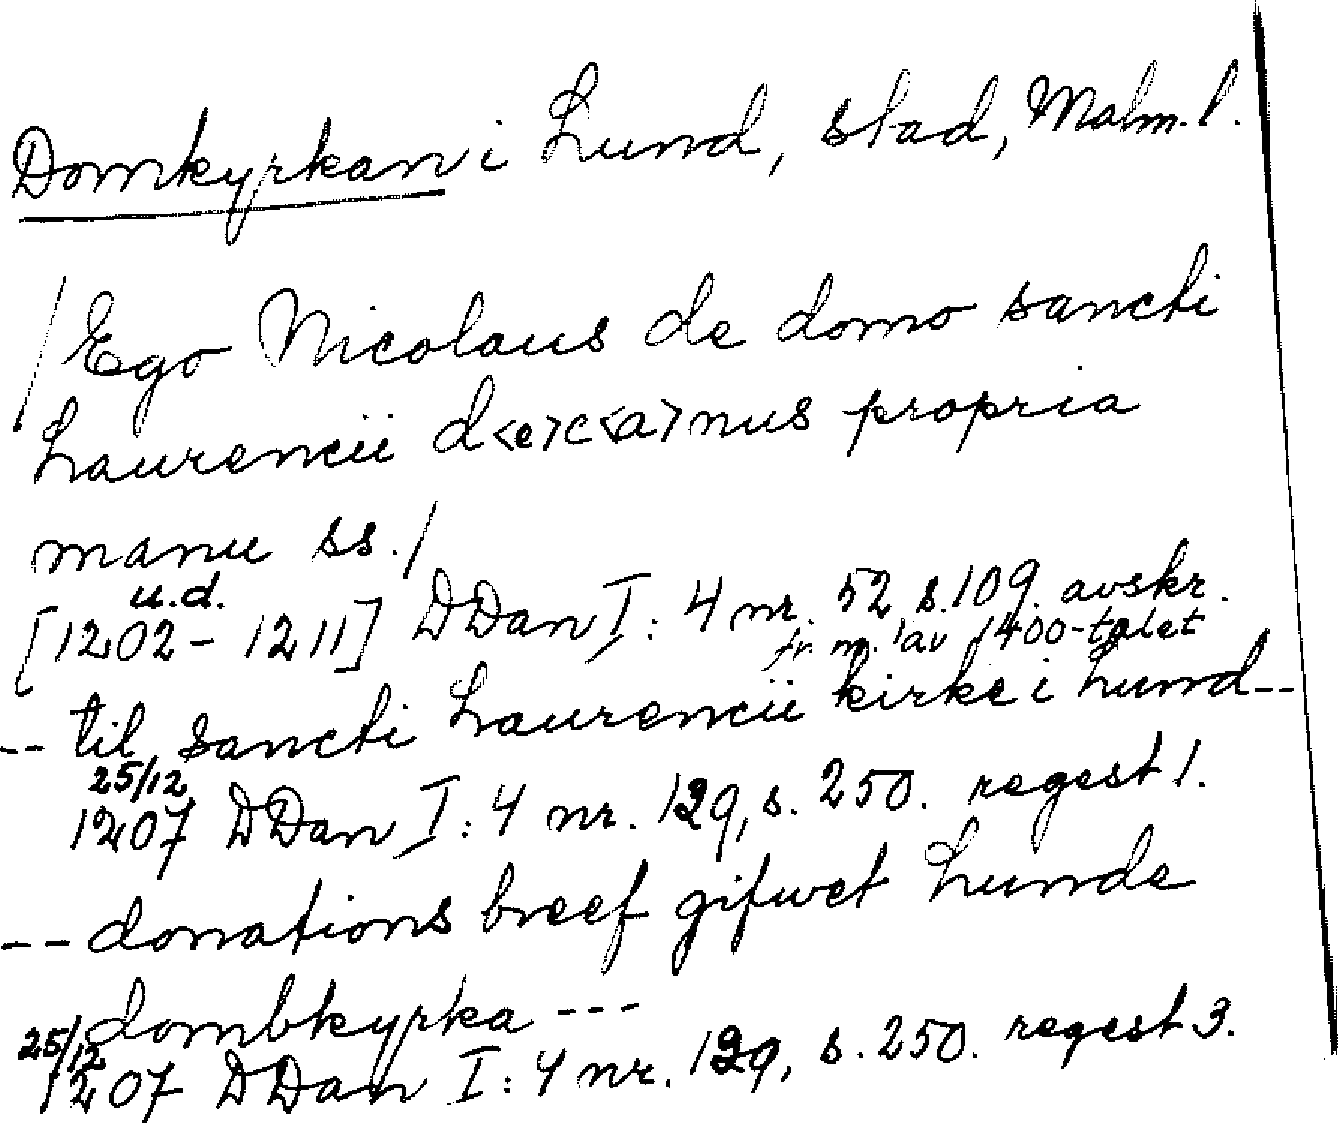 Domkyrkan i Lund, stad, Malm. l.
/Ego Nicolaus de domo sancti
Laurencii d<e>c<a>nus propria
manu ss./
u.d.
[1202 - 1211] DDan I: 4 nr. 52 s. 109. avskr.
fr. m. av 1400-talet
-- til sancti Laurencii kirke i Lund --
25/12
1207 DDan I: 4 nr. 129, s. 250. regest 1.
-- donations breef gifwet Lunde
dombkyrka ---
25/12
1207 DDan I: 4 nr. 129, s. 250. regest 3.